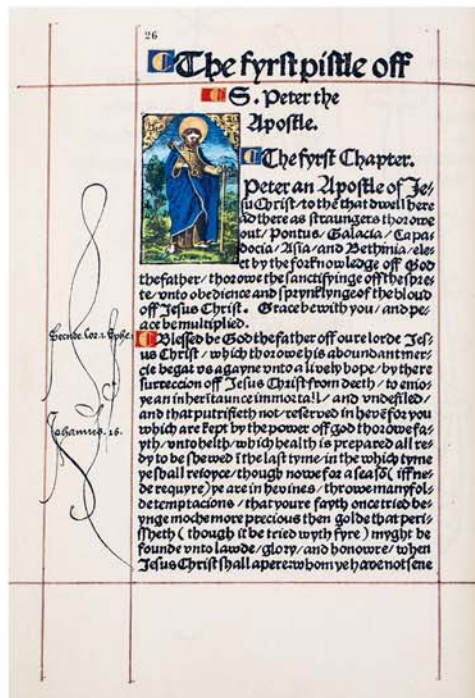 26
The fyrst pistle off
S. Peter the
Apostle.
The fyrst Chapter.
Peter an Apostle of Je⸗
su Christ/ to the that dwell here
ad there as straungers thorowe
out/ Pontus/ Galacia/ Capa
docia/ Asia/ and Bethinia/ ele⸗
ct by the forknowledge off God
the father/ thorowe the sanctifyinge off the spre⸗
te/ vnto obedience and sprynklynge of the bloud
off Jesus Christ. Grace be with you/ and pe⸗
ace be multiplied.
Blessed be God the father off oure lorde Jes⸗
us Christ/ which thorowe his aboundant mer⸗
cie begat vs agayne vnto a lively hope/ by there
surreccion off Jesus Christ from deeth/ to enio⸗
ye an inheritaunce immortall/ and vndefiled/
and that putrifieth not/ reserved in hevē for you
which are kept by the power off god thorowe fa⸗
yth/ vnto helth/ which health is prepared all re⸗
dy to be shewed ī the last tyme/ in the which tyme
ye shall reioyce/ though nowe for a seasō (iff ne⸗
de requyre) ye are in hevines/ throwe manyfol⸗
de temptacions/ that youre fayth once tried be⸗
ynge moche more precious then golde that peri⸗
ssheth (though it be tried wyth fyre) myght be
founde vnto lawde/ glory/ and honowre/ when
Jesus Christ shall apere: whom ye have not sene
Secnde. Cor. i. Ephe.
Johannes. 16.